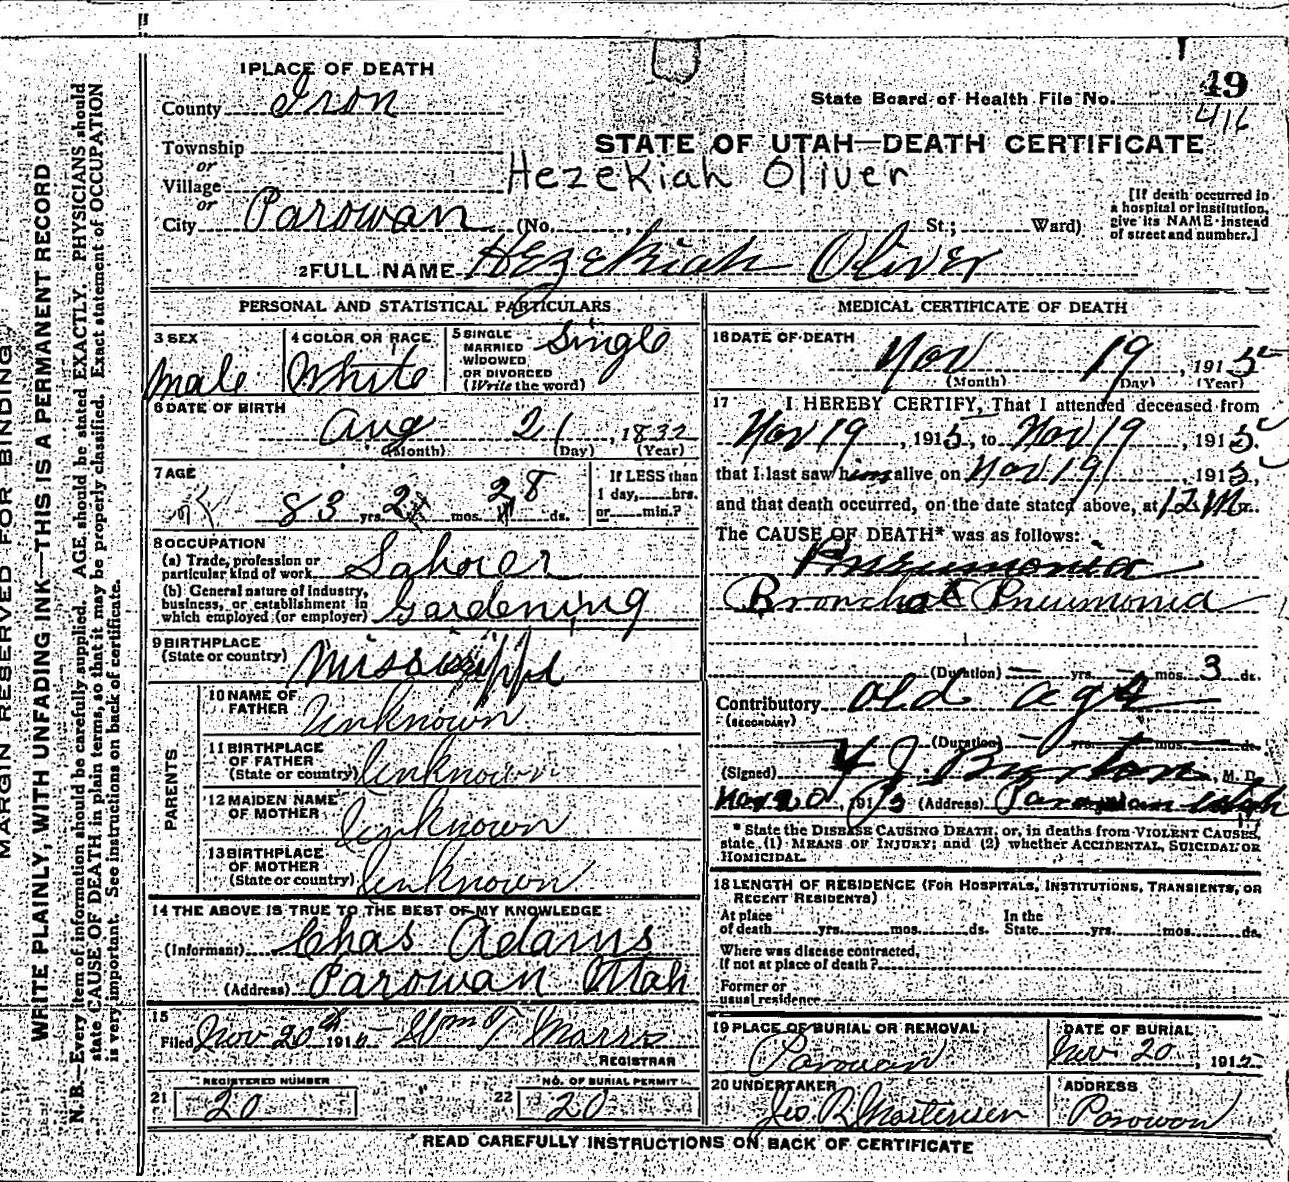 MARGIN RESERVED FOR BINDING
WRITE PLAINLY, WITH UNFADING INK—THIS IS A PERMANENT RECORD
N. B.—Every item of information should be carefully supplied. AGE should be stated EXACTLY. PHYSICIANS should
state CAUSE OF DEATH in plain terms, so that it may be properly classified. Exact statement of OCCUPATION
is very important. See instructions on back of certificate.
1 PLACE OF DEATH
County Iron
Township
or
Village
or
City Parowan (No. , St.; Ward)
State Board of Health File No. 49
416
STATE OF UTAH—DEATH CERTIFICATE
Hezekiah Oliver
[If death occurred in
a hospital or institution,
give its NAME instead
of street and number.]
2 FULL NAME Hezekiah Oliver
PERSONAL AND STATISTICAL PARTICULARS
3 SEX
Male
4 COLOR OR RACE
White
5 SINGLE
MARRIED
WIDOWED
OR DIVORCED
(Write the word)
Single
6 DATE OF BIRTH
Aug 21, 1832
(Month) (Day) (Year)
7 AGE
83 yrs. 2 mos. 28 ds.
If LESS than
1 day, hrs.
or min.?
8 OCCUPATION
(a) Trade, profession or
particular kind of work Laborer
(b) General nature of industry,
business, or establishment in
which employed (or employer) Gardening
9 BIRTHPLACE
(State or country) Mississippi
PARENTS
10 NAME OF
FATHER Unknown
11 BIRTHPLACE
OF FATHER
(State or country) Unknown
12 MAIDEN NAME
OF MOTHER Unknown
13 BIRTHPLACE
OF MOTHER
(State or country) Unknown
14 THE ABOVE IS TRUE TO THE BEST OF MY KNOWLEDGE
(Informant) Chas Adams
(Address) Parowan Utah
15
Filed Nov 20th 191 Wm T
REGISTRAR
REGISTERED NUMBER
21 20
NO. OF BURIAL PERMIT
22 20
MEDICAL CERTIFICATE OF DEATH
16 DATE OF DEATH
Nov 19, 1915
(Month) (Day) (Year)
17 I HEREBY CERTIFY, That I attended deceased from
Nov 19, 1915, to Nov 19, 1915,
that I last saw him alive on Nov 19, 1915,
and that death occurred, on the date stated above, at 12 M.
The CAUSE OF DEATH* was as follows:
Pneumonia
Broncho Pneumonia
(Duration) yrs. mos. 3 ds.
Contributory old age
(SECONDARY)
(Duration) yrs. mos. ds.
(Signed) J. Burton M. D.
Nov 20, 1915 (Address) Parowan Utah
* State the DISEASE CAUSING DEATH, or, in deaths from VIOLENT CAUSES,
state (1) MEANS OF INJURY; and (2) whether ACCIDENTAL, SUICIDAL OR
HOMICIDAL.
18 LENGTH OF RESIDENCE (FOR HOSPITALS, INSTITUTIONS, TRANSIENTS, OR
RECENT RESIDENTS)
At place
of death yrs. mos. ds.
In the
State yrs. mos. ds.
Where was disease contracted,
if not at place of death?
Former or
usual residence
19 PLACE OF BURIAL OR REMOVAL
Parowan
DATE OF BURIAL
Nov 20, 191
20 UNDERTAKER
Mortensen
ADDRESS
Parowan
READ CAREFULLY INSTRUCTIONS ON BACK OF CERTIFICATE